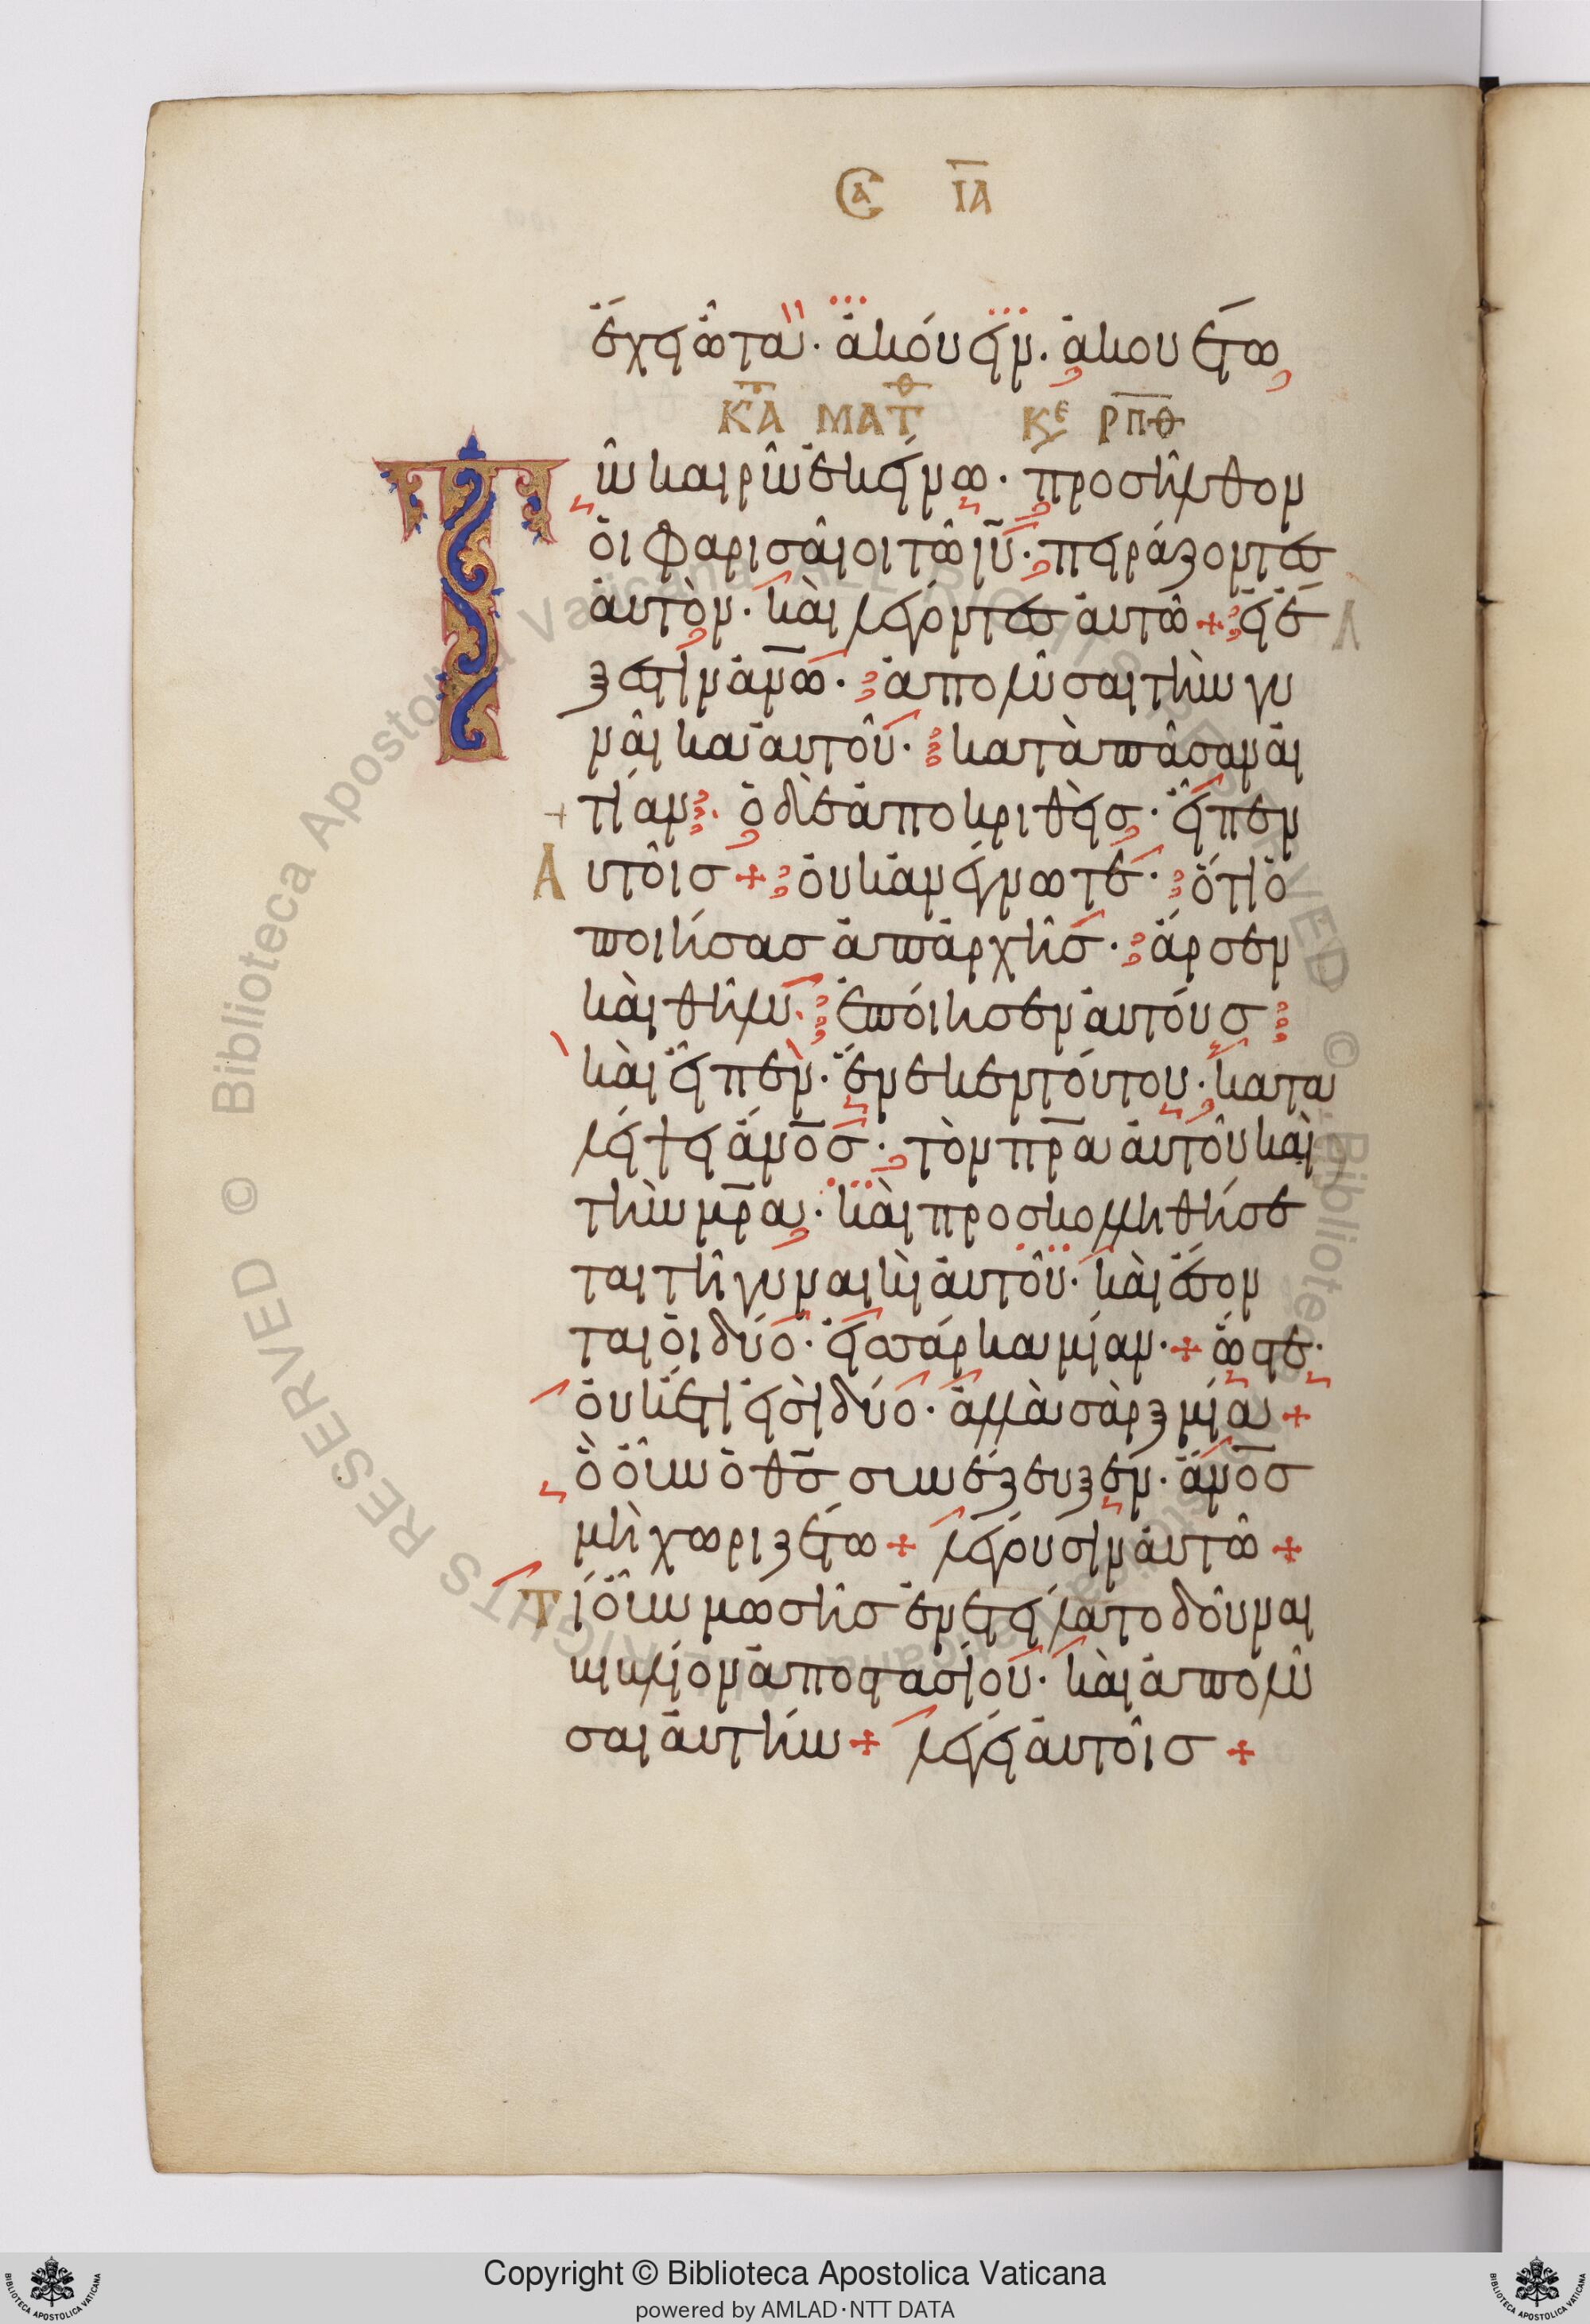 Σα ΙΑ
ἔχει ὦτα· ἀκούειν· ἀκουέτω
ΚΑ ΜΑΤΘ ΚΕ ΡΠΘ
Τῶ καιρῶ ἐκείνω· προσῆλθον
οἱ φαρισαῖοι τῶ ιυ· πειράζοντες
αὐτὸν· καὶ λέγοντες αὐτῶ + εἰ ἔ
ξεστιν ανω· ἀπολῦσαι τὴν γυ
ναῖκα αὐτοῦ· κατὰ πᾶσαν αἰ
τίαν· ὁ δὲ ἀποκριθεὶς· εἶπεν
Αυτοῖς + οὐκ ἀνέγνωτε· ὅτι ὁ
ποιήσας ἀπαρχῆς· ἄρσεν
καὶ θῆλυ· ἐποίησεν αὐτούς
καὶ εἶπεν· ἕνεκεν τούτου· κατα
λείψει ανος· τὸν πρα αὐτοῦ καὶ
τὴν μρα· καὶ προσκολληθήσε
ται τῆ γυναικὶ αὐτοῦ· καὶ ἔσον
ται οἱ δύο· εἰς σάρκα μίαν· + ὥστε·
οὐκέτι εἰσὶ δύο· ἀλλὰ σὰρξ μία +
ὃ οὖν ὁ θς συνέζευξεν· ανος
μὴ χωριζέτω + λέγουσιν αὐτῶ +
Τί οὖν μωσῆς ἐνετείλατο δοῦναι
βιβλίον ἀποστασίου· καὶ ἀπολῦ
σαι αὐτήν + λέγει αὐτοῖς +
Copyright © Biblioteca Apostolica Vaticana
powered by AMLAD·NTT DATA